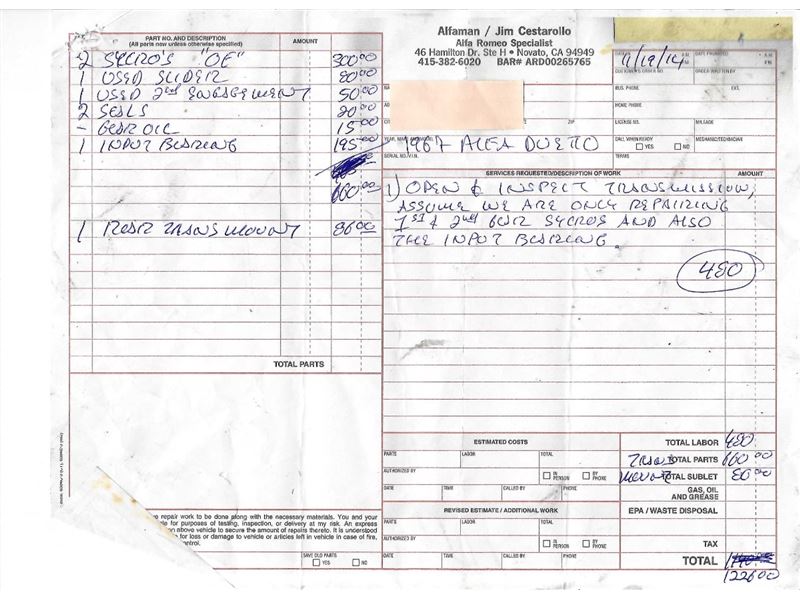 PART NO. AND DESCRIPTION
(All parts new unless otherwise specified)
AMOUNT
2 SYCRO'S "OE" 300.00
1 USED SLIDER 80.00
1 USED 2nd ENGAGEMENT 50.00
2 SEALS 20.00
- GEAR OIL 15.00
1 INPUT BEARING 195.00
660.00
1 REAR TRANS MOUNT 86.00
TOTAL PARTS
Alfaman / Jim Cestarollo
Alfa Romeo Specialist
46 Hamilton Dr. Ste H • Novato, CA 94949
415-382-6020 BAR# ARD00265765
11/19/14
DATE PROMISED
A.M.
P.M.
CUSTOMER'S ORDER NO.
ORDER WRITTEN BY
BUS. PHONE
EXT.
HOME PHONE
ZIP
LICENSE NO.
MILEAGE
YEAR, MAKE AND MODEL
1967 ALFA DUETTO
CALL WHEN READY
YES NO
MECHANIC/TECHNICIAN
SERIAL NO./V.I.N.
TERMS
SERVICES REQUESTED/DESCRIPTION OF WORK
AMOUNT
1) OPEN & INSPECT TRANSMISSION,
ASSUME WE ARE ONLY REPAIRING
1st & 2nd GEAR SYCROS AND ALSO
THE INPUT BEARING.
480
ESTIMATED COSTS
PARTS LABOR TOTAL
AUTHORIZED BY
IN PERSON BY PHONE
DATE TIME CALLED BY PHONE
REVISED ESTIMATE / ADDITIONAL WORK
PARTS LABOR TOTAL
AUTHORIZED BY
IN PERSON BY PHONE
DATE TIME CALLED BY PHONE
TOTAL LABOR 480.
TRANS TOTAL PARTS 660.00
MOUNT TOTAL SUBLET 86.00
GAS, OIL
AND GREASE
EPA / WASTE DISPOSAL
TAX
TOTAL
1226.00
repair work to be done along with the necessary materials. You and your
for purposes of testing, inspection, or delivery at my risk. An express
on above vehicle to secure the amount of repairs thereto. It is understood
for loss or damage to vehicle or articles left in vehicle in case of fire,
SAVE OLD PARTS
YES NO